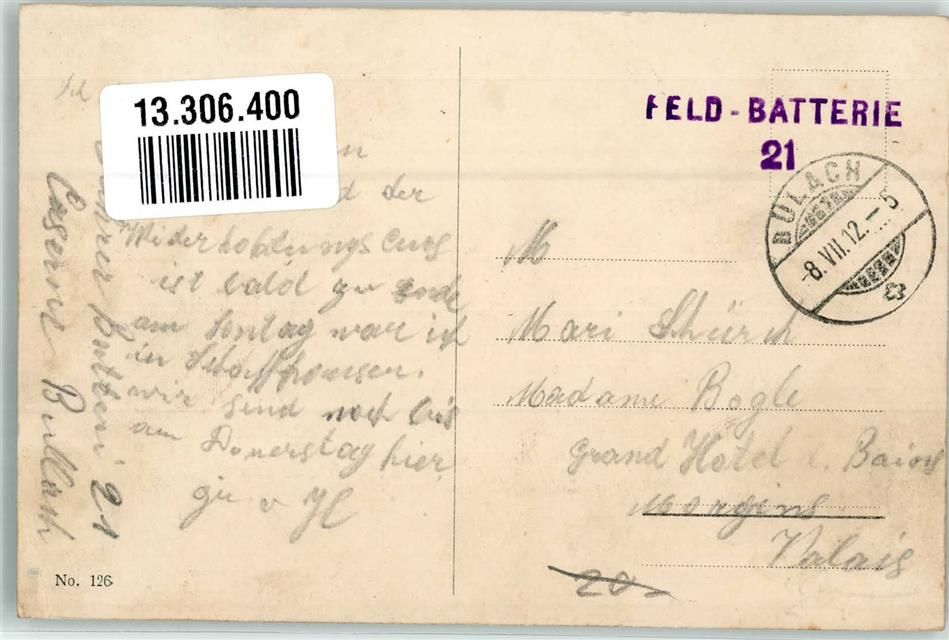 13.306.400
FELD-BATTERIE
21
BÜLACH
-8.VII.12.-5
der
Wiederhohlungs Curs
ist bald zu Ende
am Sontag war ich
in Schaffhausen.
wir sind noch bis
am Donerstag hier
gr v H
Batteri 21
Caserne Bullach
M
Mari Schürch
Madame Bogle
Grand Hotel d. Bains
Morgins
Valais
20
No. 126